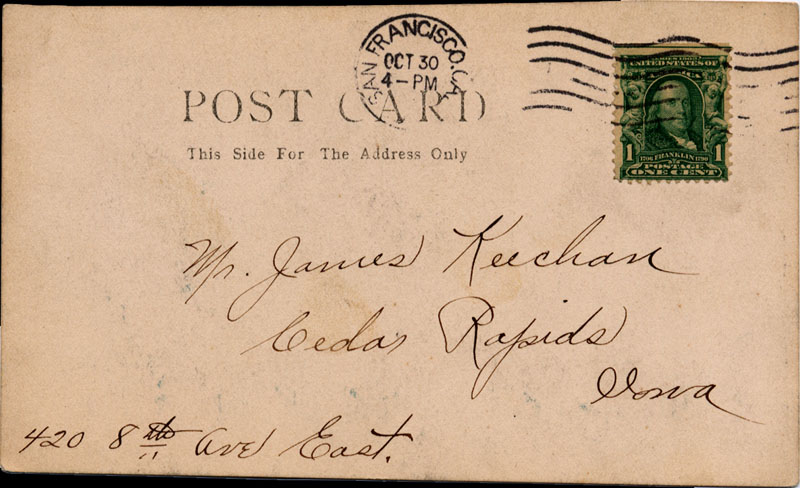 SAN FRANCISCO, CA.
OCT 30
4-PM
POST CARD
This Side For The Address Only
UNITED STATES OF
AMERICA
1 1706 FRANKLIN 1790 1
POSTAGE
ONE CENT
Mr. James Keechan
Cedar Rapids
Iowa
420 8th Ave East.